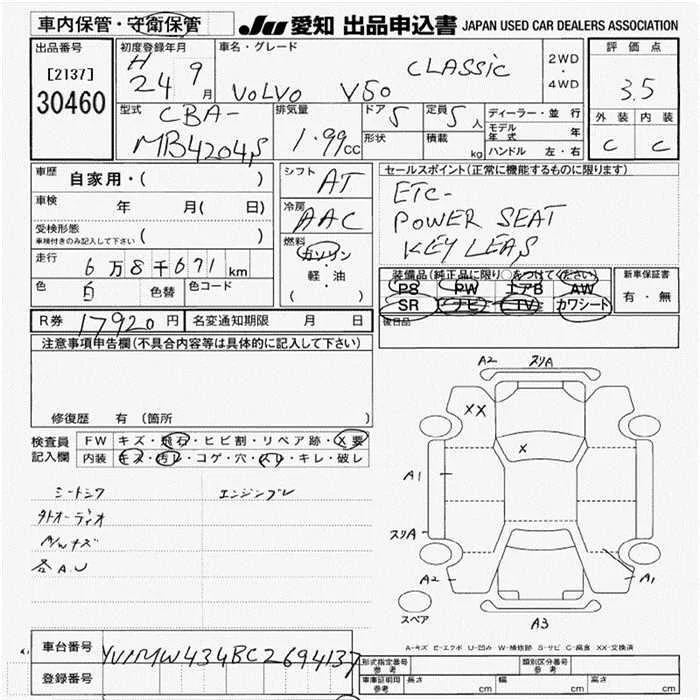 車内保管・守衛保管 JU 愛知 出品申込書 JAPAN USED CAR DEALERS ASSOCIATION
出品番号 初度登録年月 車名・グレード 2WD・4WD 評価点
[2137] H 24 9月 VOLVO V50 CLASSIC 3.5
30460
型式 CBA- 排気量 ドア 5 定員 5人 ディーラー・並行 外装 内装
MB4204S 1.99cc 形状 積載 kg モデル年式 年 C C
ハンドル 左・右
車歴 自家用・( ) シフト AT セールスポイント(正常に機能するものに限ります)
車検 年 月( 日) 冷房 AAC ETC-
受検形態 POWER SEAT
車検付きのみ記入して下さい ( ) 燃料 ガソリン KEY LEAS
走行 6万8千671km 軽・油 装備品(純正品に限り○をつけてください) 新車保証書
色 白 色替 色コード ( ) PS PW エアB AW 有・無
R券 17920円 名変通知期限 月 日 SR ナビ TV カワシート
後日品
注意事項申告欄(不具合内容等は具体的に記入して下さい)
A2 スリA
XX
X
修復歴 有 (箇所
検査員 FW キズ・飛石・ヒビ割・リペア跡・X要
記入欄 内装 キズ・汚レ・コゲ・穴・スレ・キレ・破レ
A1
シートシワ エンジンブレ
外オーディオ
スリA
A/Wキズ
各A.U
A2 A1
スペア A3
A-キズ E-エクボ U-凹み W-補修跡 S-サビ C-腐食 XX-交換済
車台番号 YV1MW434BC2694137 形式指定番号 参考 類別区分番号 参考
登録番号 車庫証明用 参考 長さ cm 幅 cm 高さ cm